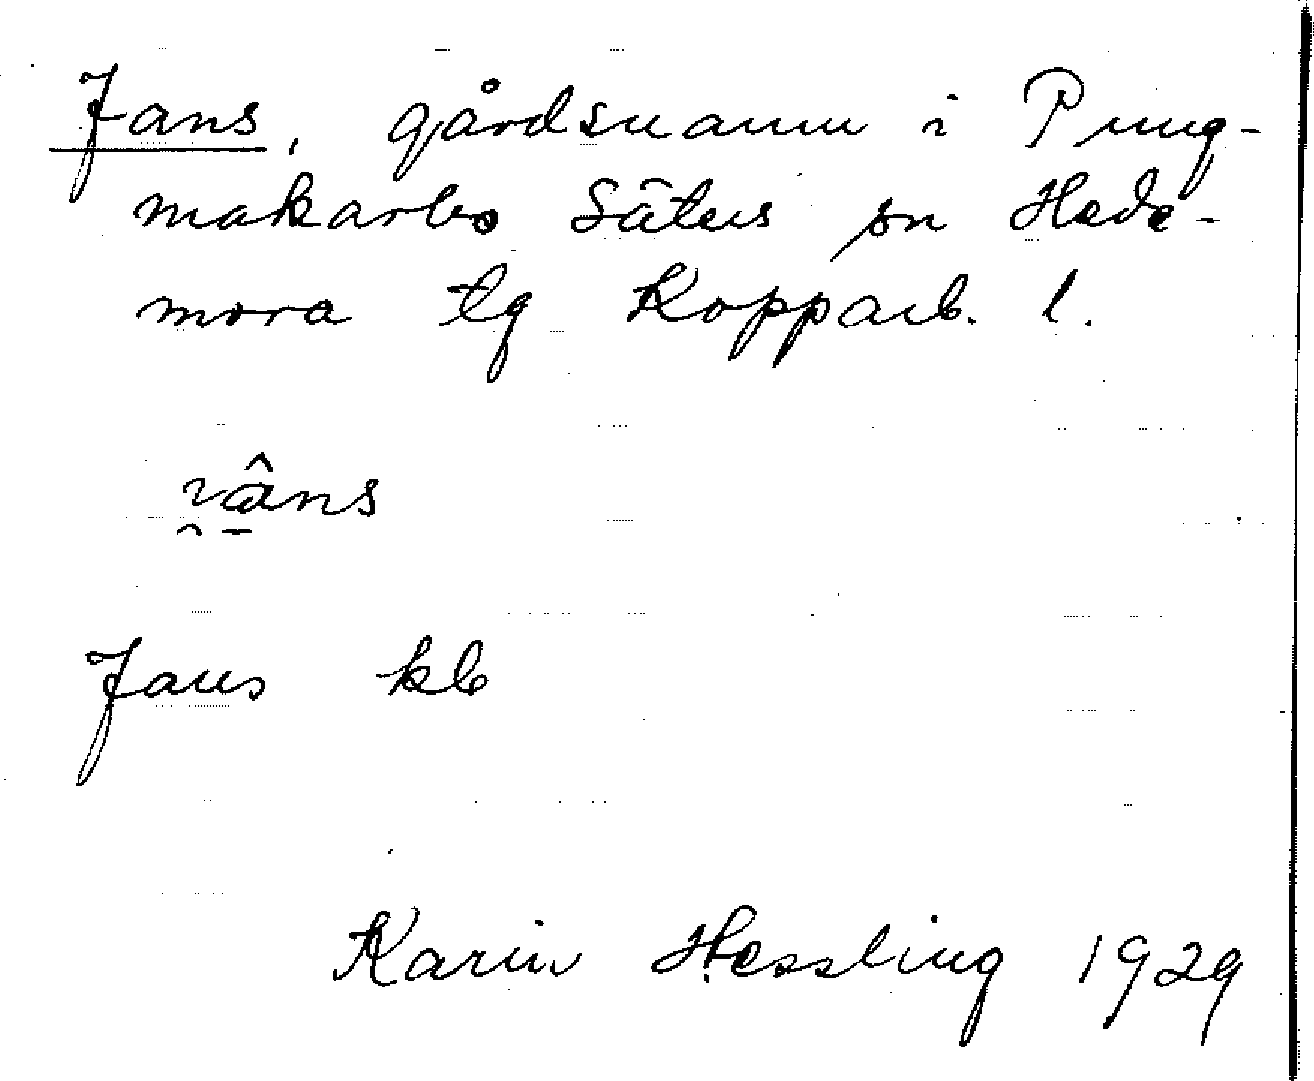 Jans, gårdsnamn i Pung-
makarbo Säters sn Hede-
mora tg Kopparb. l.
Jans kb
Karin Hessling 1929